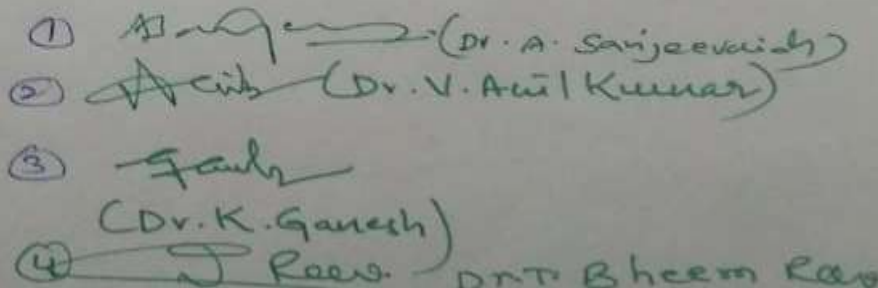 ① (Dr. A. Sanjeevaiah)
② (Dr. V. Anil Kumar)
③
(Dr. K. Ganesh)
④ J Rao. Dr. T. Bheem Rao